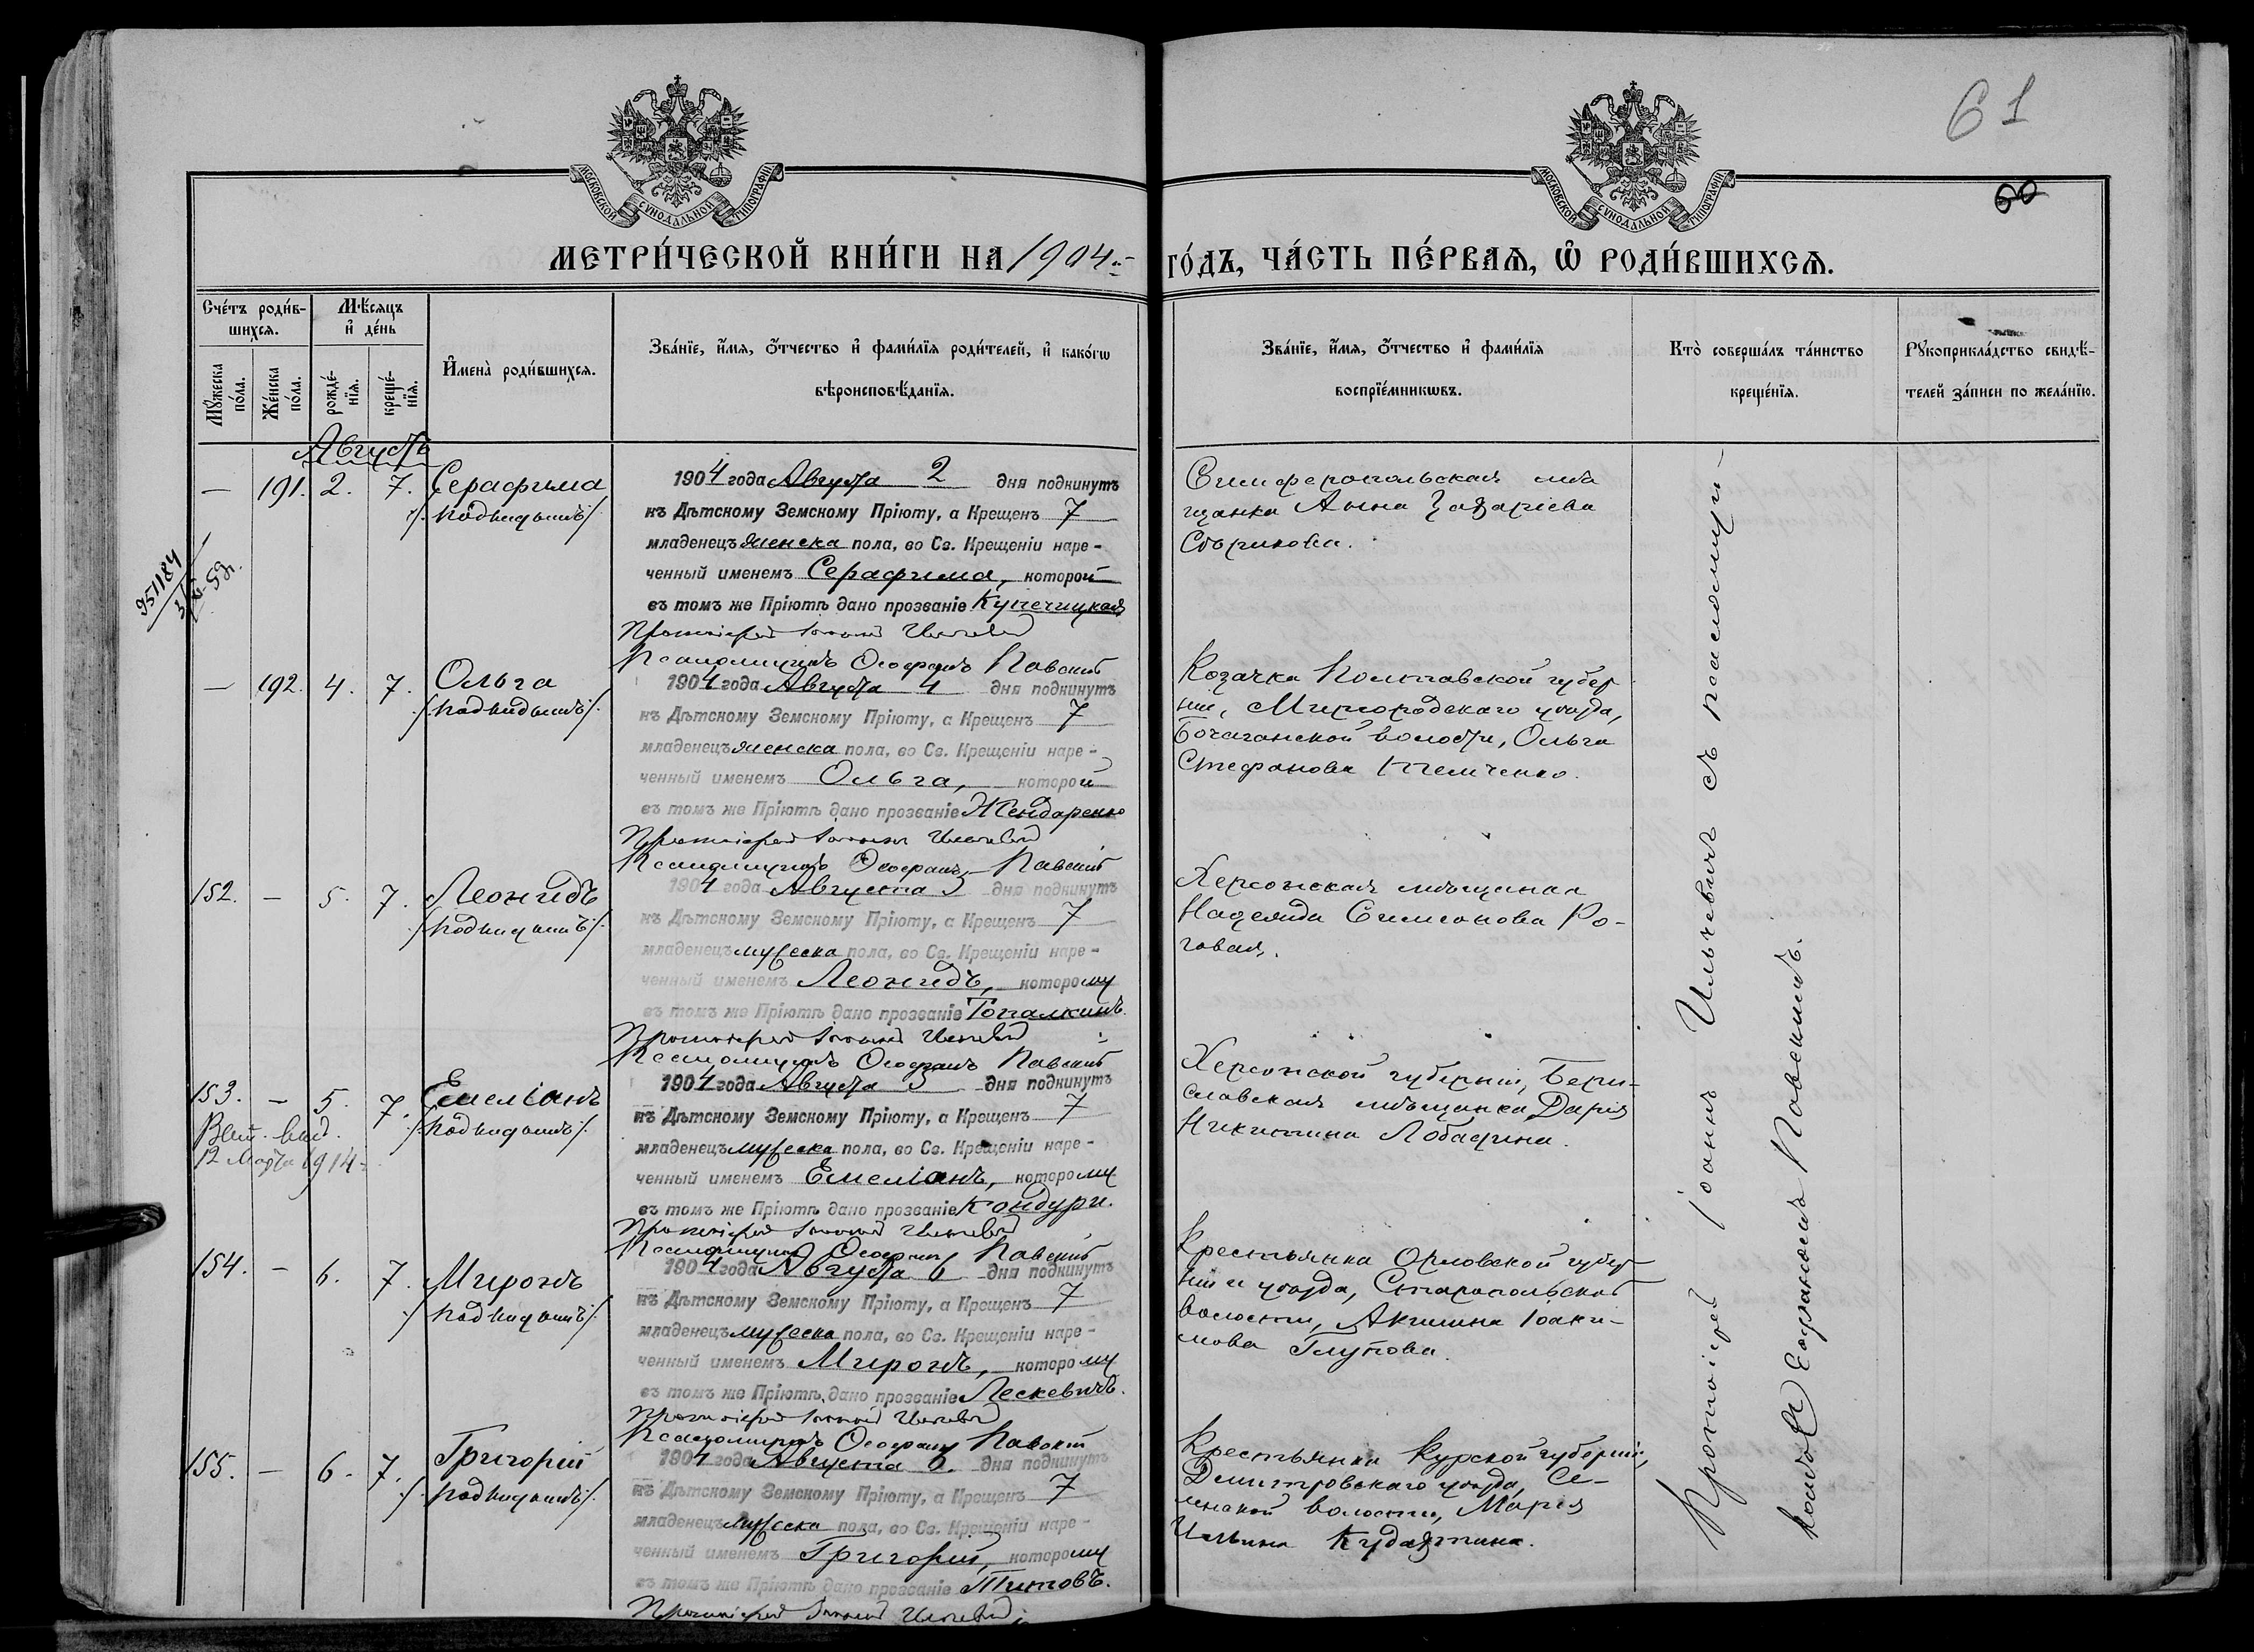 61
60
МОСКОВСКОЙ СУНОДАЛЬНОЙ ТИПОГРАФІИ
МОСКОВСКОЙ СУНОДАЛЬНОЙ ТИПОГРАФІИ
МЕТРИ́ЧЕСКОЙ КНИ́ГИ НА 1904 ГО́ДЪ, ЧА́СТЬ ПЕ́РВАѦ, Ѡ҆ РОДИ́ВШИХСѦ.
Сче́тъ роди́в-
шихсѧ.
Мꙋ́жеска по́ла.
Же́нска по́ла.
Мѣ́сѧцъ
и҆ де́нь
рожде́-
нїѧ.
креще́-
нїѧ.
И҆мена̀ роди́вшихсѧ.
Зва́нїе, и҆́мѧ, ѻ҆́тчество и҆ фами́лїѧ роди́телей, и҆ како́гѡ
вѣроисповѣ́данїѧ.
Зва́нїе, и҆́мѧ, ѻ҆́тчество и҆ фами́лїѧ
воспрїе́мникѡвъ.
Кто̀ соверша́лъ та́инство
креще́нїѧ.
Рꙋкоприкла́дство свидѣ́-
телей за́писи по жела́нїю.
Августъ
— 191. 2. 7. Серафима
/. подкидышъ ./
1904 года Августа 2 дня подкинутъ
къ Дѣтскому Земскому Пріюту, а Крещенъ 7
младенецъ женска пола, во Св. Крещеніи наре-
ченный именемъ Серафима, которой
въ томъ же Пріютѣ дано прозваніе Купечицкая
Протоіерей Іоаннъ Ильчевич
Псаломщикъ Павскій
Симферопольская мѣ
щанка Анна Захаріева
951184
— 192. 4. 7. Ольга
/. подкидышъ ./
1904 года Августа 4 дня подкинутъ
къ Дѣтскому Земскому Пріюту, а Крещенъ 7
младенецъ женска пола, во Св. Крещеніи наре-
ченный именемъ Ольга, которой
въ томъ же Пріютѣ дано прозваніе Жендаренко
Протоіерей Іоаннъ Ильчевич
Псаломщикъ Павскій
Козачка Полтавской губер
ніи, Миргородскаго уѣзда,
волости, Ольга
Стефанова
152. — 5. 7. Леонидъ
/. подкидышъ ./
1904 года Августа 5 дня подкинутъ
къ Дѣтскому Земскому Пріюту, а Крещенъ 7
младенецъ мужеска пола, во Св. Крещеніи наре-
ченный именемъ Леонидъ, которому
въ томъ же Пріютѣ дано прозваніе Топалкинъ.
Протоіерей Іоаннъ Ильчевич
Псаломщикъ Павскій
Херсонская мѣщанка
Надежда Симеонова Ро-
говая.
153. — 5. 7. Емеліанъ
/. подкидышъ ./
12 Марта 1914
1904 года Августа 5 дня подкинутъ
къ Дѣтскому Земскому Пріюту, а Крещенъ 7
младенецъ мужеска пола, во Св. Крещеніи наре-
ченный именемъ Емеліанъ, которому
въ томъ же Пріютѣ дано прозваніе Кондури.
Протоіерей Іоаннъ Ильчевич
Псаломщикъ Павскій
Херсонской губерніи, Бери-
славская мѣщанка Дарія
Никитина
154. — 6. 7. Миронъ
/. подкидышъ ./
1904 года Августа 6 дня подкинутъ
къ Дѣтскому Земскому Пріюту, а Крещенъ 7
младенецъ мужеска пола, во Св. Крещеніи наре-
ченный именемъ Миронъ, которому
въ томъ же Пріютѣ дано прозваніе Лескевичъ.
Протоіерей Іоаннъ Ильчевич
Псаломщикъ Павскій
Крестьянка Орловской губер
ніи и уѣзда, Старопольской
волости, Акилина Іоаки-
мова Глупова.
155. — 6. 7. Григорій
/. подкидышъ ./
1904 года Августа 6. дня подкинутъ
къ Дѣтскому Земскому Пріюту, а Крещенъ 7
младенецъ мужеска пола, во Св. Крещеніи наре-
ченный именемъ Григорій, которому
въ томъ же Пріютѣ дано прозваніе Титовъ.
Протоіерей Іоаннъ Ильчевич
Крестьянка Курской губерніи,
Димитровскаго уѣзда,
волости, Марія
Ильина
Протоіерей Іоаннъ Ильчевичъ съ псаломщи-
комъ Павскимъ.